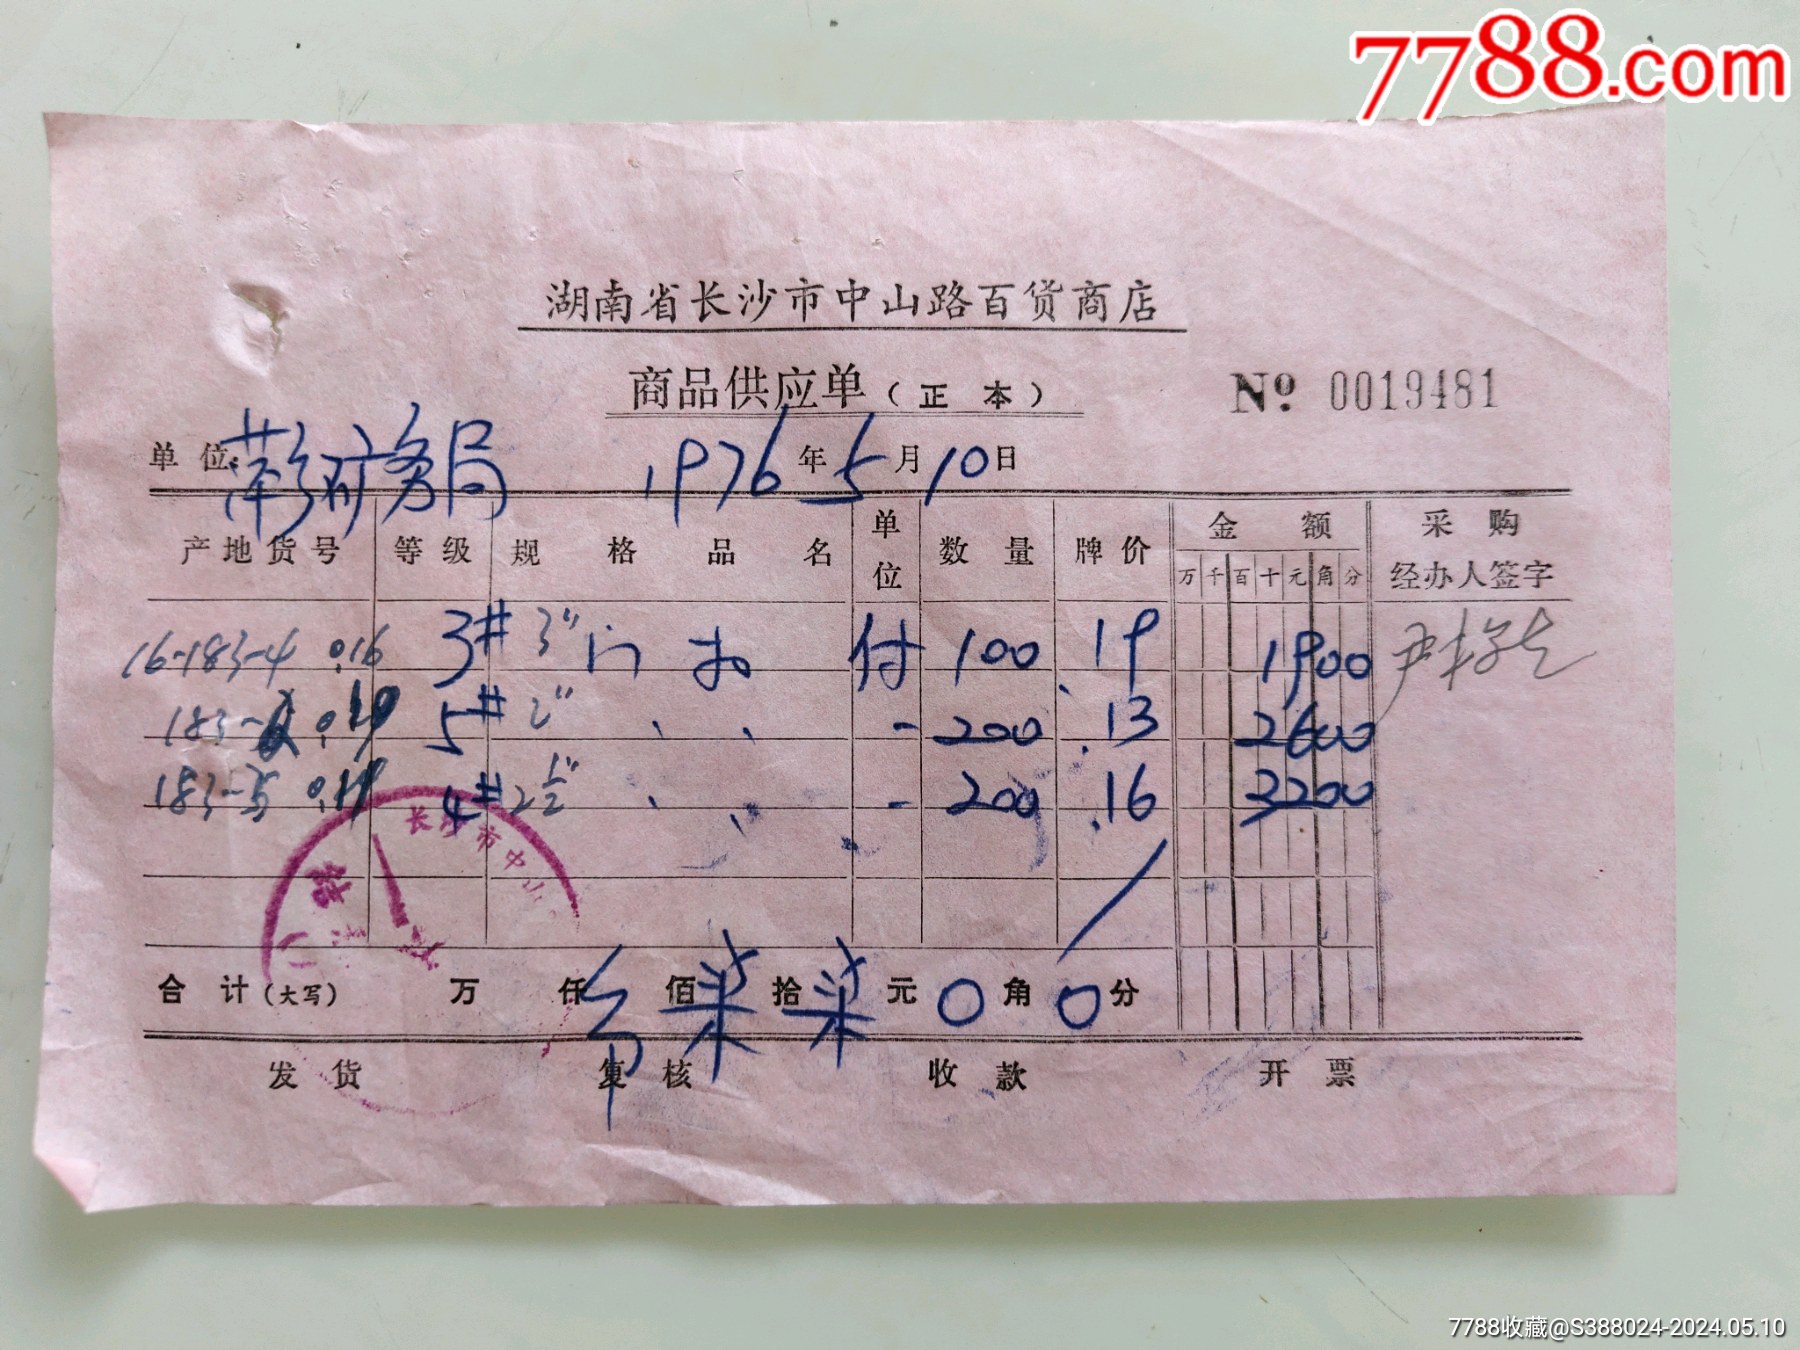 7788.com
湖南省长沙市中山路百货商店
商品供应单(正本)
№ 0019481
单位: 矿务局 1976年5月10日
产地货号 等级 规格品名 单位 数量 牌价 金额 采购
万 千 百 十 元 角 分 经办人签字
16-183-4 0.16 3# 3" 门扣 付 100 .19 1900
5# 2" 、 、 - 200 .13 2600
183-5 4# 2½" 、 、 - 200 .16 3200
长沙市中山
合计(大写) 万 仟 佰 柒 拾 柒 元 0 角 0 分
发货 复核 收款 开票
7788收藏@S388024-2024.05.10